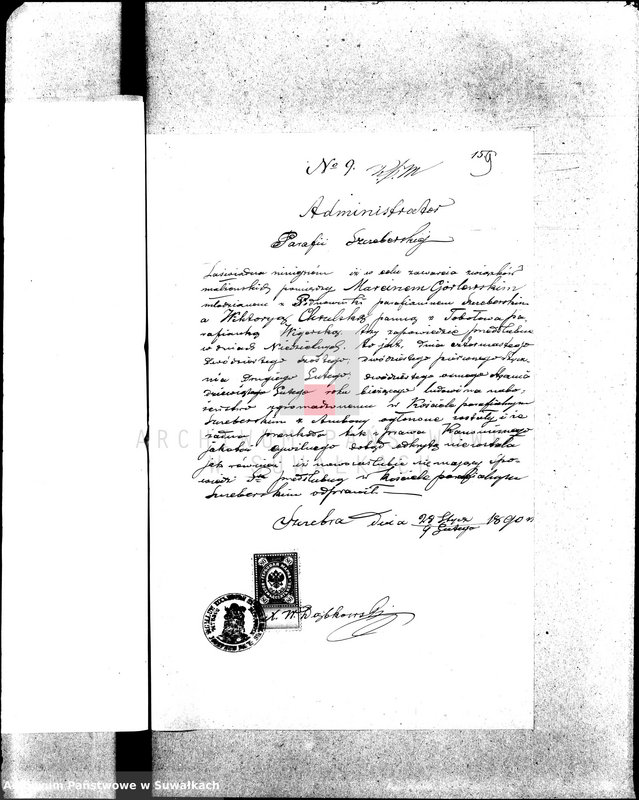 No 9.
159
Administrator
Parafii Szczeberskiej
Zaświadcza niniejszém iż w celu zawarcia związków
małżeńskich pomiędzy Marcinem Górlewskim
młodzianem z parafianem Szczeberskim
a Wiktoryą Chrulską panną z Tobołowa pa
rafianką Wigierską trzy zapowiedzie przedślubne
w dniach Niedzielnych to jest, dnia
dwódziestego szóstego, dwódziestego pierwszego Stycz
nia Drugiego Lutego, dwódziestego ósmego Stycznia
dziewiątego Lutego roku bieżącego ludowi na nabo
żeństwo zgromadzonemu w Kościele parafialnym
Szczeberskim z Ambony ogłoszone zostały i że
żadna przeszkoda tak z prawa Kanonicznego
jakoteż cywilnego dotąd odkrytą nie została
jak również iż nowozaślubić się mający Spo
wiedź Stą przedślubną w Kościele parafialnym
Szczeberskim odprawił.
Szczebra Dnia 28 Stycz / 9 Lutego 1890 r
X. W. Bojkowski
ARCHIWUM PAŃSTWOWE
W SUWAŁKACH
Archiwum Państwowe w Suwałkach